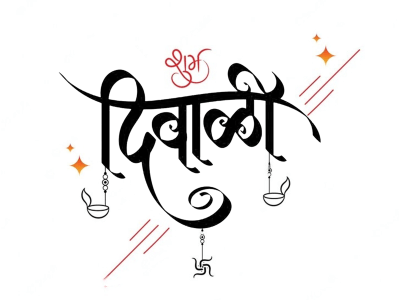 शुभ
दिवाळी